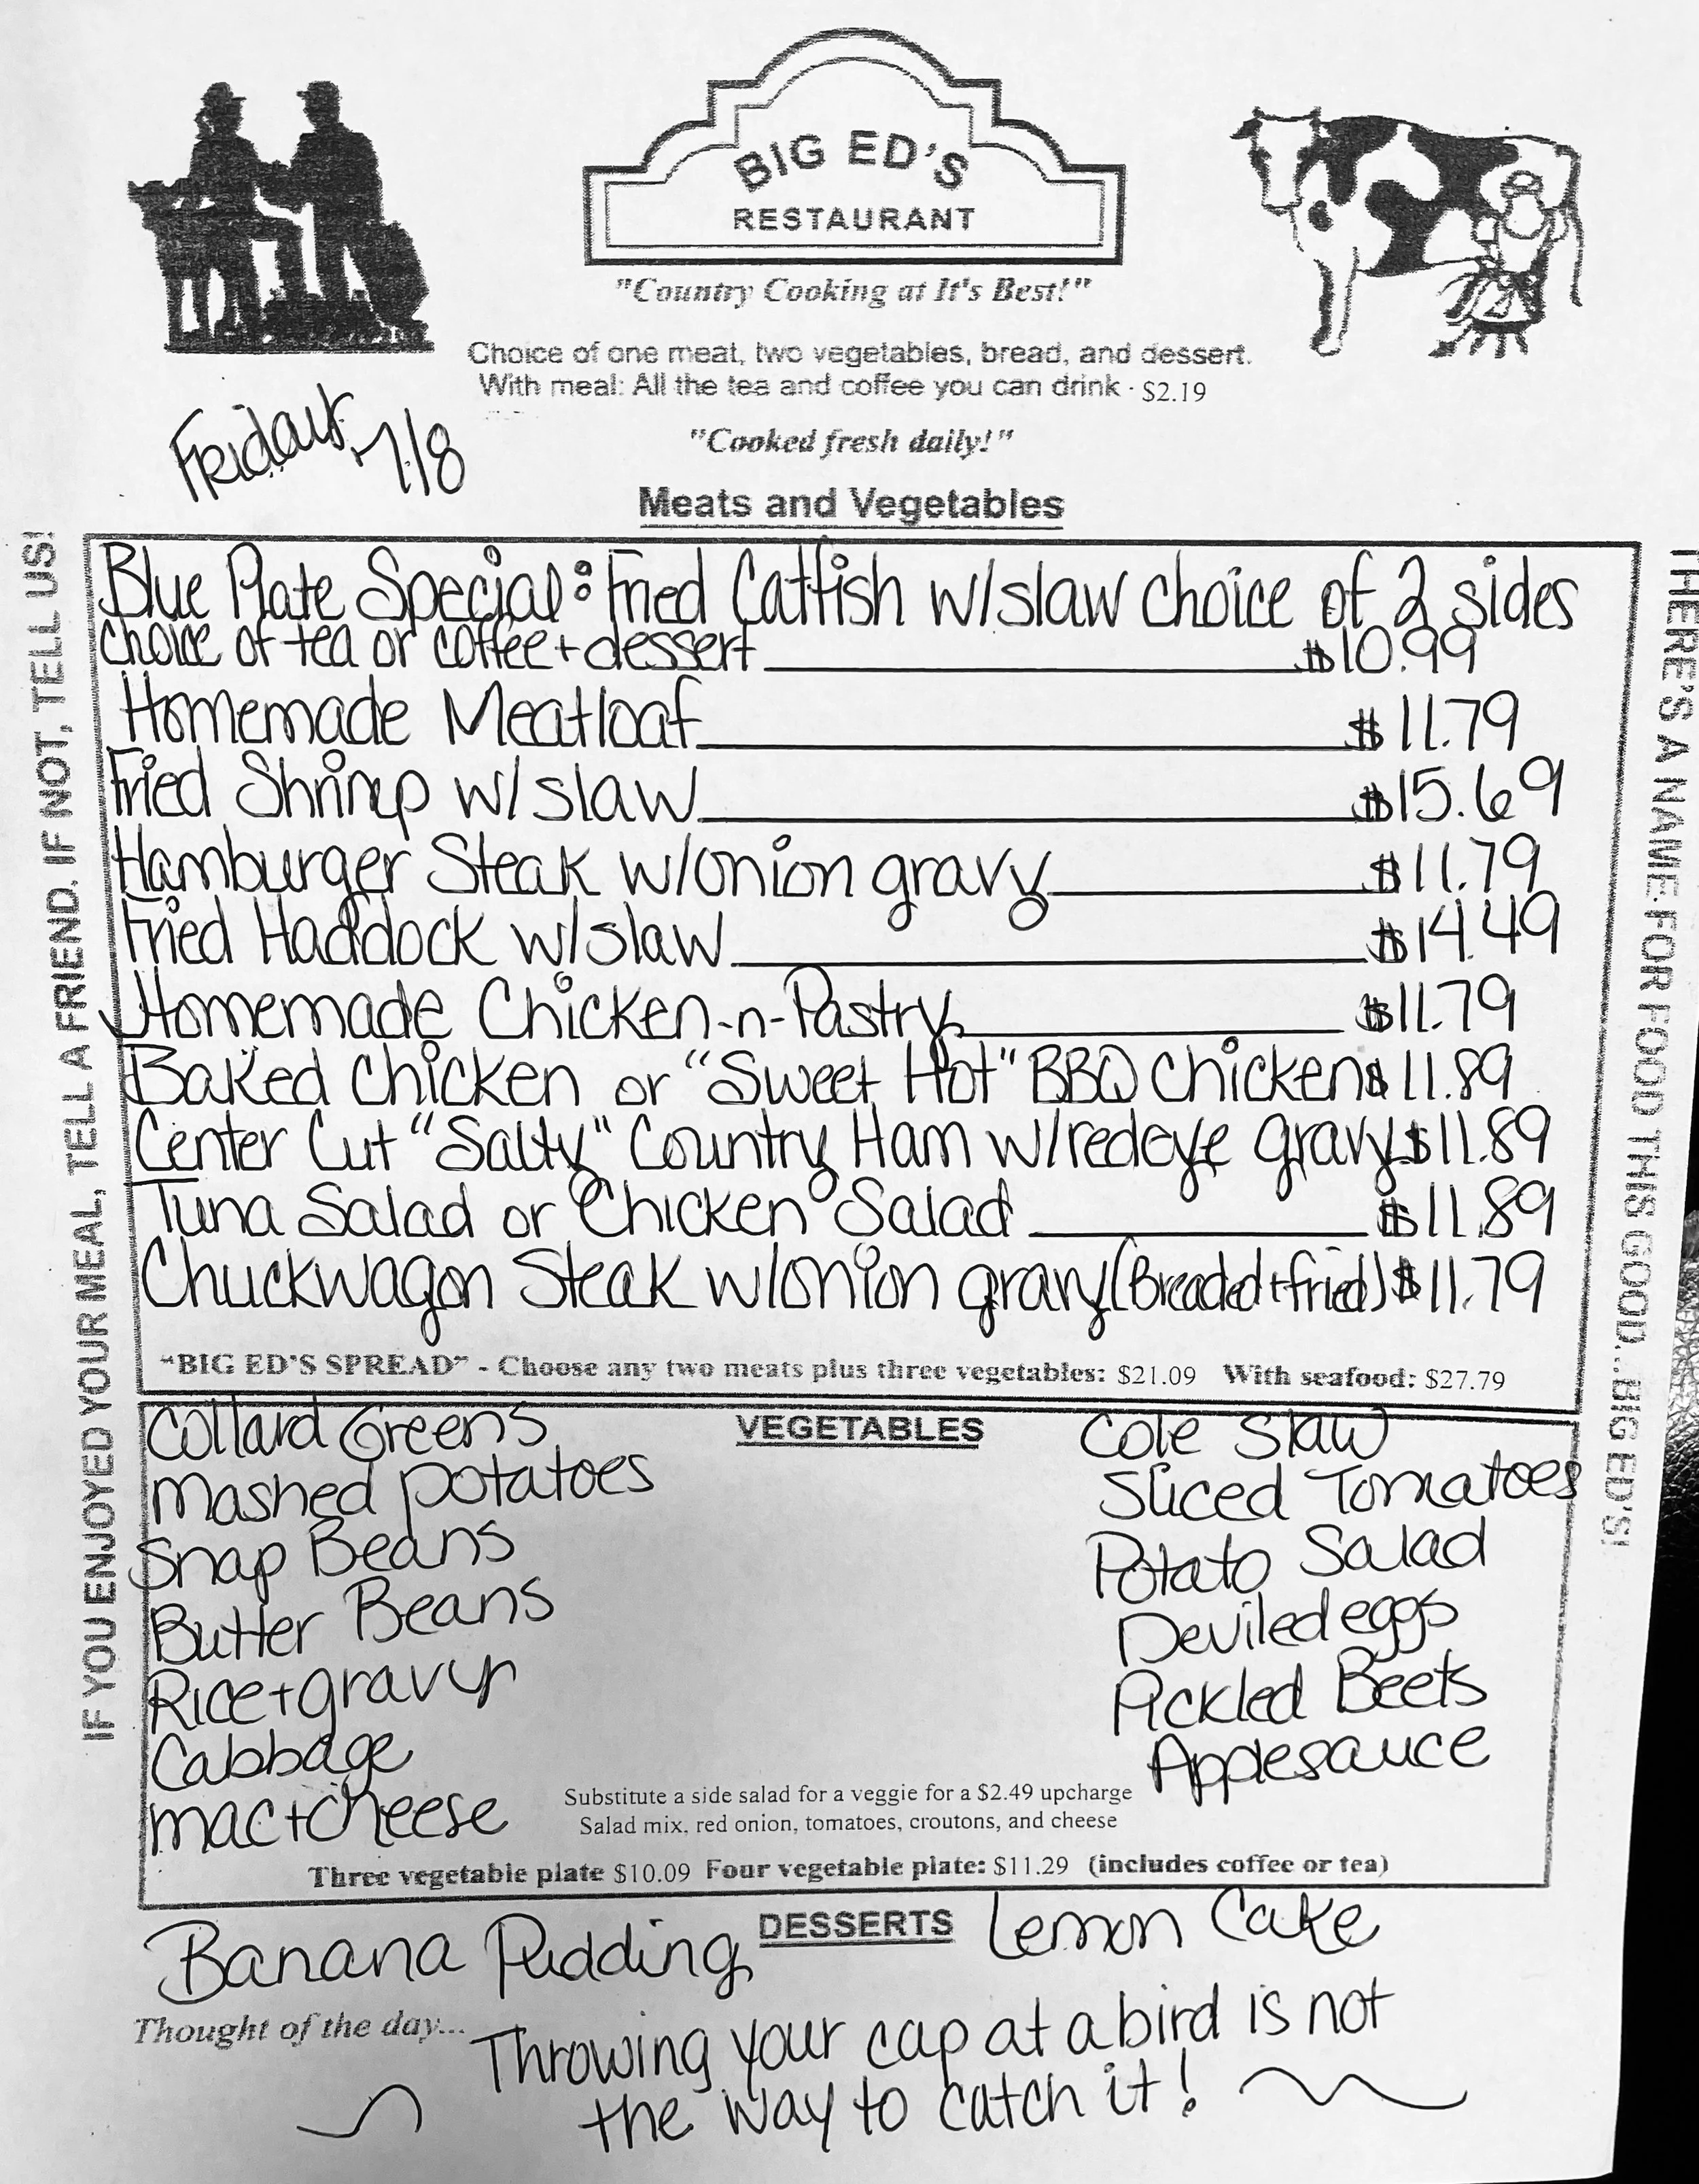 BIG ED'S
RESTAURANT
"Country Cooking at It's Best!"
Choice of one meat, two vegetables, bread, and dessert.
With meal: All the tea and coffee you can drink - $2.19
"Cooked fresh daily!"
Friday, 7/8
Meats and Vegetables
IF YOU ENJOYED YOUR MEAL, TELL A FRIEND. IF NOT, TELL US!
Blue Plate Special: Fried Catfish w/slaw choice of 2 sides
choice of tea or coffee + dessert $10.99
Homemade Meatloaf $11.79
Fried Shrimp w/slaw $15.69
Hamburger Steak w/onion gravy $11.79
Fried Haddock w/slaw $14.49
Homemade Chicken-n-Pastry $11.79
Baked Chicken or "Sweet Hot" BBQ Chicken $11.89
Center Cut "Salty" Country Ham w/redeye gravy $11.89
Tuna Salad or Chicken Salad $11.89
Chuckwagon Steak w/onion gravy (Breaded + fried) $11.79
"BIG ED'S SPREAD" - Choose any two meats plus three vegetables: $21.09 With seafood: $27.79
THERE'S A NAME FOR FOOD THIS GOOD...BIG ED'S!
VEGETABLES
Collard Greens
Mashed potatoes
Snap Beans
Butter Beans
Rice + gravy
Cabbage
mac + cheese
Cole Slaw
Sliced Tomatoes
Potato Salad
Deviled eggs
Pickled Beets
Applesauce
Substitute a side salad for a veggie for a $2.49 upcharge
Salad mix, red onion, tomatoes, croutons, and cheese
Three vegetable plate $10.09 Four vegetable plate: $11.29 (includes coffee or tea)
DESSERTS
Banana Pudding
Lemon Cake
Thought of the day...
Throwing your cap at a bird is not
the way to catch it!